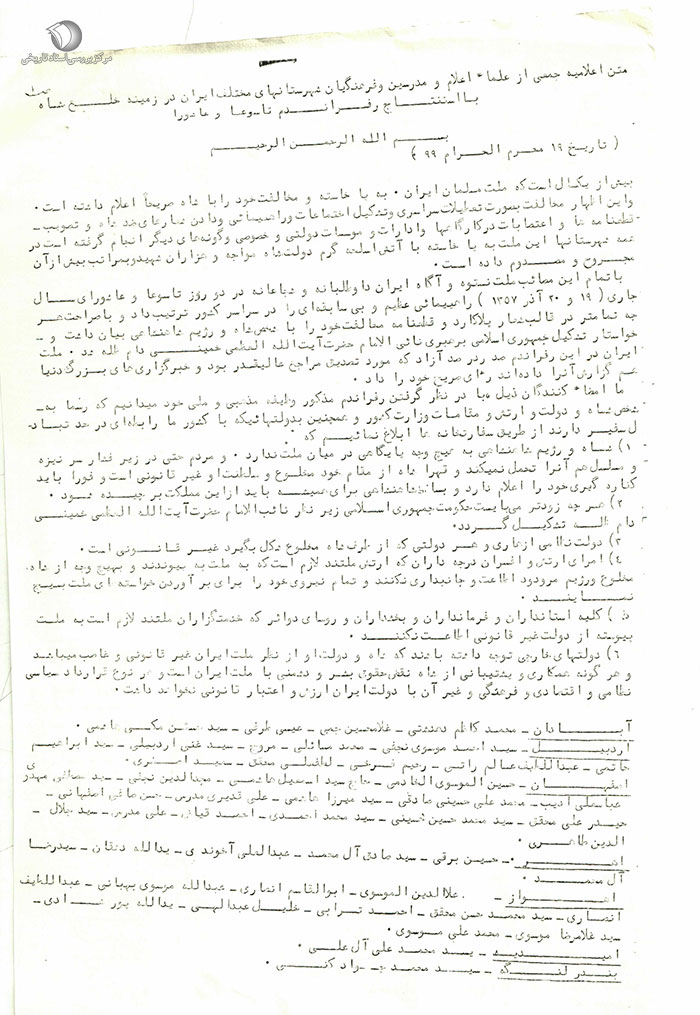 مرکز بررسی اسناد تاریخی
متن اعلامیه جمعی از علماء اعلام و مدرسین و فرهنگیان شهرستانهای مختلف ایران در زمینه خلع شاه
با استنتاج رفراندم تاسوعا و عاشورا
بسم الله الرحمن الرحیم
( تاریخ ۱۹ محرم الحرام ۹۹ )
بیش از یکسال است که ملت مسلمان ایران ٠ به پا خاسته و مخالفت خود را با شاه صریحاً اعلام داشته است ٠
و این اظهار مخالفت بصورت تعطیلات سراسری و تشکیل اجتماعات و راهپیمائی و دادن شعارهای ضد شاه و تصویب ـ
قطعنامه ها و اعتصابات در کارگاهها و ادارات و موسسات دولتی و خصوصی و گونه های دیگر انجام گرفته است در
همه شهرستانها این ملت به پا خاسته با آتش اسلحه گرم دولت شاه مواجه و هزاران شهید و بمراتب بیش از آن
مجروح و مصدوم داده است ٠
با تمام این مصائب ملت نستوه و آگاه ایران داوطلبانه و شجاعانه در دو روز تاسوعا و عاشورای سال
جاری ( ۱۹ و ۲۰ آذر ۱۳۵۷ ) راهپیمائی عظیم و بی سابقه ای را در سراسر کشور ترتیب داد و با صراحت هر
چه تمامتر در قالب شعار پلاکارد و قطعنامه مخالفت خود را با شخص شاه و رژیم شاهنشاهی بیان داشت و ـ
خواستار تشکیل جمهوری اسلامی برهبری نائب الامام حضرت آیت الله العظمی خمینی دام ظله شد ٠ ملت
ایران در این رفراندم صد در صد آزاد که مورد تصدیق مراجع عالیقدر بود و خبرگزاری های بزرگ دنیا
هم گزارش آنرا داده اند رأی صریح خود را داد ٠
ما امضاء کنندگان ذیل با در نظر گرفتن رفراندم مذکور وظیفه مذهبی و ملی خود میدانیم که رسما به ـ
شخص شاه و دولت و ارتش و مقامات وزارت کشور و همچنین بدولتهائیکه با کشور ما رابطه ای در حد تبادل
سفیر دارند از طریق سفارتخانه ها ابلاغ نمائیم که ٠
۱) شاه و رژیم شاهنشاهی به هیچ وجه پایگاهی در میان ملت ندارد ٠ و مردم حتی در زیر فشار سر نیزه
و مسلسل هم آنرا تحمل نمیکند و قهرا شاه از مقام خود مخلوع و سلطنت او غیر قانونی است و فورا باید
کناره گیری خود را اعلام دارد و بساط شاهنشاهی برای همیشه باید از این مملکت برچیده شود ٠
۲) هر چه زودتر می بایست حکومت جمهوری اسلامی زیر نظر نائب الامام حضرت آیت الله العظمی خمینی
دام ظله تشکیل گردد ٠
۳) دولت نظامی ازهاری و هر دولتی که از طرف شاه مخلوع شکل بگیرد غیر قانونی است ٠
٤) امرای ارتش و افسران درجه داران که ارتش ملتند لازم است که به ملت به پیوندند و بهیچ وجه از شاه
مخلوع و رژیم مردود اطاعت و جانبداری نکنند و تمام نیروی خود را برای بر آوردن خواسته های ملت بسیج
نمایند ٠
۵) کلیه استانداران و فرمانداران و بخشداران و روسای دوائر که خدمتگزاران ملتند لازم است به ملت
پیوسته از دولت غیر قانونی اطاعت نکنند ٠
٦) دولتهای خارجی توجه داشته باشند که شاه و دولت او از نظر ملت ایران غیر قانونی و غاصب میباشد
و هر گونه همکاری و پشتیبانی از شاه نقض حقوق بشر و دشمنی با ملت ایران است و هر نوع قرارداد سیاسی
نظامی و اقتصادی و فرهنگی و غیر آن با دولت ایران ارزش و اعتبار قانونی نخواهد داشت ٠
آبادان ـ محمد کاظم دهدشتی ـ غلامحسین جمی ـ عیسی طرفی ـ سید مکی هاشمی ٠
اردبیل ـ سید احمد موسوی نجفی ـ محمد مسائلی ـ مروج ـ سید غنی اردبیلی ـ سید ابراهیم
هاتمی ـ عبداللطیف ـ رحیم ـ لطفعلی محقق ـ سعید اصغری ٠
اصفهان ـ حسین الموسوی الخادمی ـ حاج سید اسمعیل هاشمی ـ مجدالدین نجفی ـ سید مهدوی
عباسعلی ادیب ـ محمد علی حسینی صادقی ـ سید میرزا هاشمی ـ علی قدیری مدرس ـ حسن صافی اصفهانی ـ
حیدر علی محقق ـ سید محمد حسین حسینی ـ سید محمد احمدی ـ احمد ـ علی مدرس ـ سید جلال ـ
الدین طاهری ٠
اهر ـ حسین برقی ـ سید صادق آل محمد ـ عبدالعلی آخوندی ـ یدالله دهقان ـ سید رضا
آل محمد ٠
اهواز ـ علاالدین الموسوی ـ ابوالقاسم انصاری ـ عبدالله موسوی بهبهانی ـ عبداللطیف
انصاری ـ سید محمد حسن محقق ـ احمد ترابی ـ خلیل عبدالهی ـ یدالله پور هادی ـ
سید غلامرضا موسوی ـ محمد علی موسوی ٠
امیدیه ـ سید محمد علی آل علی ٠
بندر لنگه ـ سید محمد جواد ٠